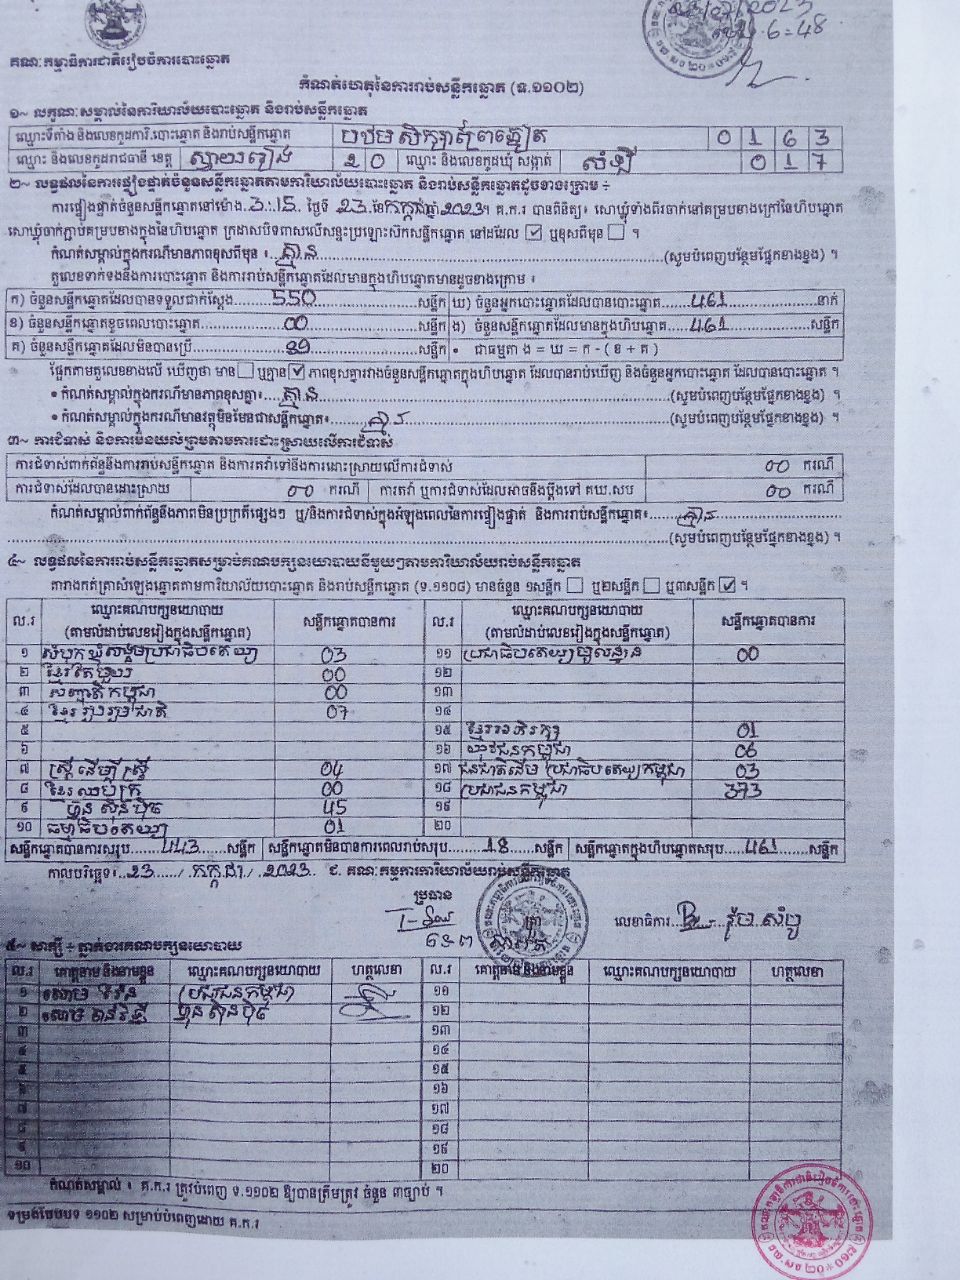 23/07/2023
6:48
គណៈកម្មាធិការជាតិរៀបចំការបោះឆ្នោត
កំណត់ហេតុនៃការរាប់សន្លឹកឆ្នោត (ទ.១១០២)
១~ លក្ខណៈសម្គាល់នៃការិយាល័យបោះឆ្នោត និងរាប់សន្លឹកឆ្នោត
ឈ្មោះទីតាំង និងលេខកូដការិ.បោះឆ្នោត និងរាប់សន្លឹកឆ្នោត បឋមសិក្សា 0 1 6 3
ឈ្មោះ និងលេខកូដរាជធានី ខេត្ត ស្វាយរៀង 20 ឈ្មោះ និងលេខកូដឃុំ សង្កាត់ 0 1 7
២~ លទ្ធផលនៃការផ្ទៀងផ្ទាត់ចំនួនសន្លឹកឆ្នោតតាមការិយាល័យបោះឆ្នោត និងរាប់សន្លឹកឆ្នោតដូចខាងក្រោម ÷
ការផ្ទៀងផ្ទាត់ចំនួនសន្លឹកឆ្នោតនៅម៉ោង 3:15 ថ្ងៃទី 23 ខែកក្កដាឆ្នាំ 2023។ គ.ក.រ បានពិនិត្យ៖ សោឃ្លុំទាំងពីរចាក់នៅគម្របខាងក្រៅនៃហិបឆ្នោត
សោឃ្លុំចាក់ភ្ជាប់គម្របខាងក្នុងនៃហិបឆ្នោត ក្រដាសបិទពាសលើសន្ទះប្រឡោះស៊កសន្លឹកឆ្នោត នៅដដែល ☑ ឬខុសពីមុន ☐ ។
កំណត់សម្គាល់ក្នុងករណីមានភាពខុសពីមុន ៖ គ្មាន (សូមបំពេញបន្ថែមផ្នែកខាងខ្នង) ។
តួលេខទាក់ទងនឹងការបោះឆ្នោត និងការរាប់សន្លឹកឆ្នោតដែលមានក្នុងហិបឆ្នោតមានដូចខាងក្រោម ៖
ក) ចំនួនសន្លឹកឆ្នោតដែលបានទទួលជាក់ស្តែង 550 សន្លឹក ឃ) ចំនួនអ្នកបោះឆ្នោតដែលបានបោះឆ្នោត 461 នាក់
ខ) ចំនួនសន្លឹកឆ្នោតខូចពេលបោះឆ្នោត 00 សន្លឹក ង) ចំនួនសន្លឹកឆ្នោតដែលមានក្នុងហិបឆ្នោត 461 សន្លឹក
គ) ចំនួនសន្លឹកឆ្នោតដែលមិនបានប្រើ 89 សន្លឹក • ជាធម្មតា ង = ឃ = ក - ( ខ + គ )
ផ្អែកតាមតួលេខខាងលើ ឃើញថា មាន ☐ ឬគ្មាន ☑ ភាពខុសគ្នារវាងចំនួនសន្លឹកឆ្នោតក្នុងហិបឆ្នោត ដែលបានរាប់ឃើញ និងចំនួនអ្នកបោះឆ្នោត ដែលបានបោះឆ្នោត ។
• កំណត់សម្គាល់ក្នុងករណីមានភាពខុសគ្នា៖ គ្មាន (សូមបំពេញបន្ថែមផ្នែកខាងខ្នង) ។
• កំណត់សម្គាល់ក្នុងករណីមានវត្ថុមិនមែនជាសន្លឹកឆ្នោត៖ គ្មាន (សូមបំពេញបន្ថែមផ្នែកខាងខ្នង) ។
៣~ ការជំទាស់ និងការមិនយល់ព្រមតាមការដោះស្រាយលើការជំទាស់
ការជំទាស់ពាក់ព័ន្ធនឹងការរាប់សន្លឹកឆ្នោត និងការតវ៉ាទៅនឹងការដោះស្រាយលើការជំទាស់ 00 ករណី
ការជំទាស់ដែលបានដោះស្រាយ 00 ករណី ការតវ៉ា ឬការជំទាស់ដែលអាចនឹងប្តឹងទៅ គឃ.សប 00 ករណី
កំណត់សម្គាល់ពាក់ព័ន្ធនឹងភាពមិនប្រក្រតីផ្សេងៗ ឬ/និងការជំទាស់ក្នុងអំឡុងពេលនៃការផ្ទៀងផ្ទាត់ និងការរាប់សន្លឹកឆ្នោត៖ គ្មាន
(សូមបំពេញបន្ថែមផ្នែកខាងខ្នង) ។
៤~ លទ្ធផលនៃការរាប់សន្លឹកឆ្នោតសម្រាប់គណបក្សនយោបាយនីមួយៗតាមការិយាល័យរាប់សន្លឹកឆ្នោត
តារាងកត់ត្រាសំឡេងឆ្នោតតាមការិយាល័យបោះឆ្នោត និងរាប់សន្លឹកឆ្នោត (ទ.១១០៨) មានចំនួន ១សន្លឹក ☐ ឬ២សន្លឹក ☐ ឬ៣សន្លឹក ☑ ។
ល.រ ឈ្មោះគណបក្សនយោបាយ (តាមលំដាប់លេខរៀងក្នុងសន្លឹកឆ្នោត) សន្លឹកឆ្នោតបានការ ល.រ ឈ្មោះគណបក្សនយោបាយ (តាមលំដាប់លេខរៀងក្នុងសន្លឹកឆ្នោត) សន្លឹកឆ្នោតបានការ
១ សំបុកឃ្មុំសង្គមប្រជាធិបតេយ្យ 03 ១១ ប្រជាធិបតេយ្យមូលដ្ឋាន 00
២ ខ្មែរតែមួយ 00 ១២
៣ សញ្ជាតិកម្ពុជា 00 ១៣
៤ ខ្មែររួបរួមជាតិ 07 ១៤
៥ ១៥ ខ្មែរអភិរក្ស 01
៦ ១៦ យុវជនកម្ពុជា 06
៧ ស្ត្រីដើម្បីស្ត្រី 04 ១៧ ជនជាតិដើមប្រជាធិបតេយ្យកម្ពុជា 03
៨ ខ្មែរឈប់ក្រ 00 ១៨ ប្រជាជនកម្ពុជា 373
៩ ហ៊្វុនស៊ិនប៉ិច 45 ១៩
១០ ធម្មាធិបតេយ្យ 01 ២០
សន្លឹកឆ្នោតបានការសរុប 443 សន្លឹក សន្លឹកឆ្នោតមិនបានការពេលរាប់សរុប 18 សន្លឹក សន្លឹកឆ្នោតក្នុងហិបឆ្នោតសរុប 461 សន្លឹក
កាលបរិច្ឆេទ៖ 23 / កក្កដា / 2023 ជ. គណៈកម្មការការិយាល័យរាប់សន្លឹកឆ្នោត
ប្រធាន
លេខាធិការ
៥~ សាក្សី ÷ ភ្នាក់ងារគណបក្សនយោបាយ
ល.រ គោត្តនាម និងនាមខ្លួន ឈ្មោះគណបក្សនយោបាយ ហត្ថលេខា ល.រ គោត្តនាម និងនាមខ្លួន ឈ្មោះគណបក្សនយោបាយ ហត្ថលេខា
១ ប្រជាជនកម្ពុជា ១១
២ ហ៊្វុនស៊ិនប៉ិច ១២
៣ ១៣
៤ ១៤
៥ ១៥
៦ ១៦
៧ ១៧
៨ ១៨
៩ ១៩
១០ ២០
កំណត់សម្គាល់ ៖ គ.ក.រ ត្រូវបំពេញ ទ.១១០២ ឱ្យបានត្រឹមត្រូវ ចំនួន ៣ច្បាប់ ។
ទម្រង់បែបបទ ១១០២ សម្រាប់បំពេញដោយ គ.ក.រ